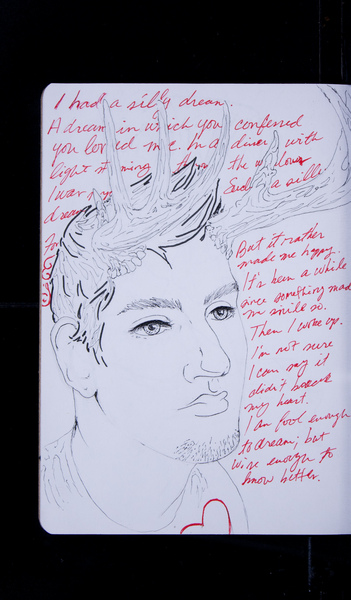 I had a silly dream.
A dream in which you confessed
you loved me in a diner with
light streaming the windows
I was
Such a silly
dream
But it rather
made me happy.
It's been a while
since something made
me smile so.
Then I woke up.
I'm not sure
I can say it
didn't break
my heart.
I am fool enough
to dream; but
wise enough to
know better.